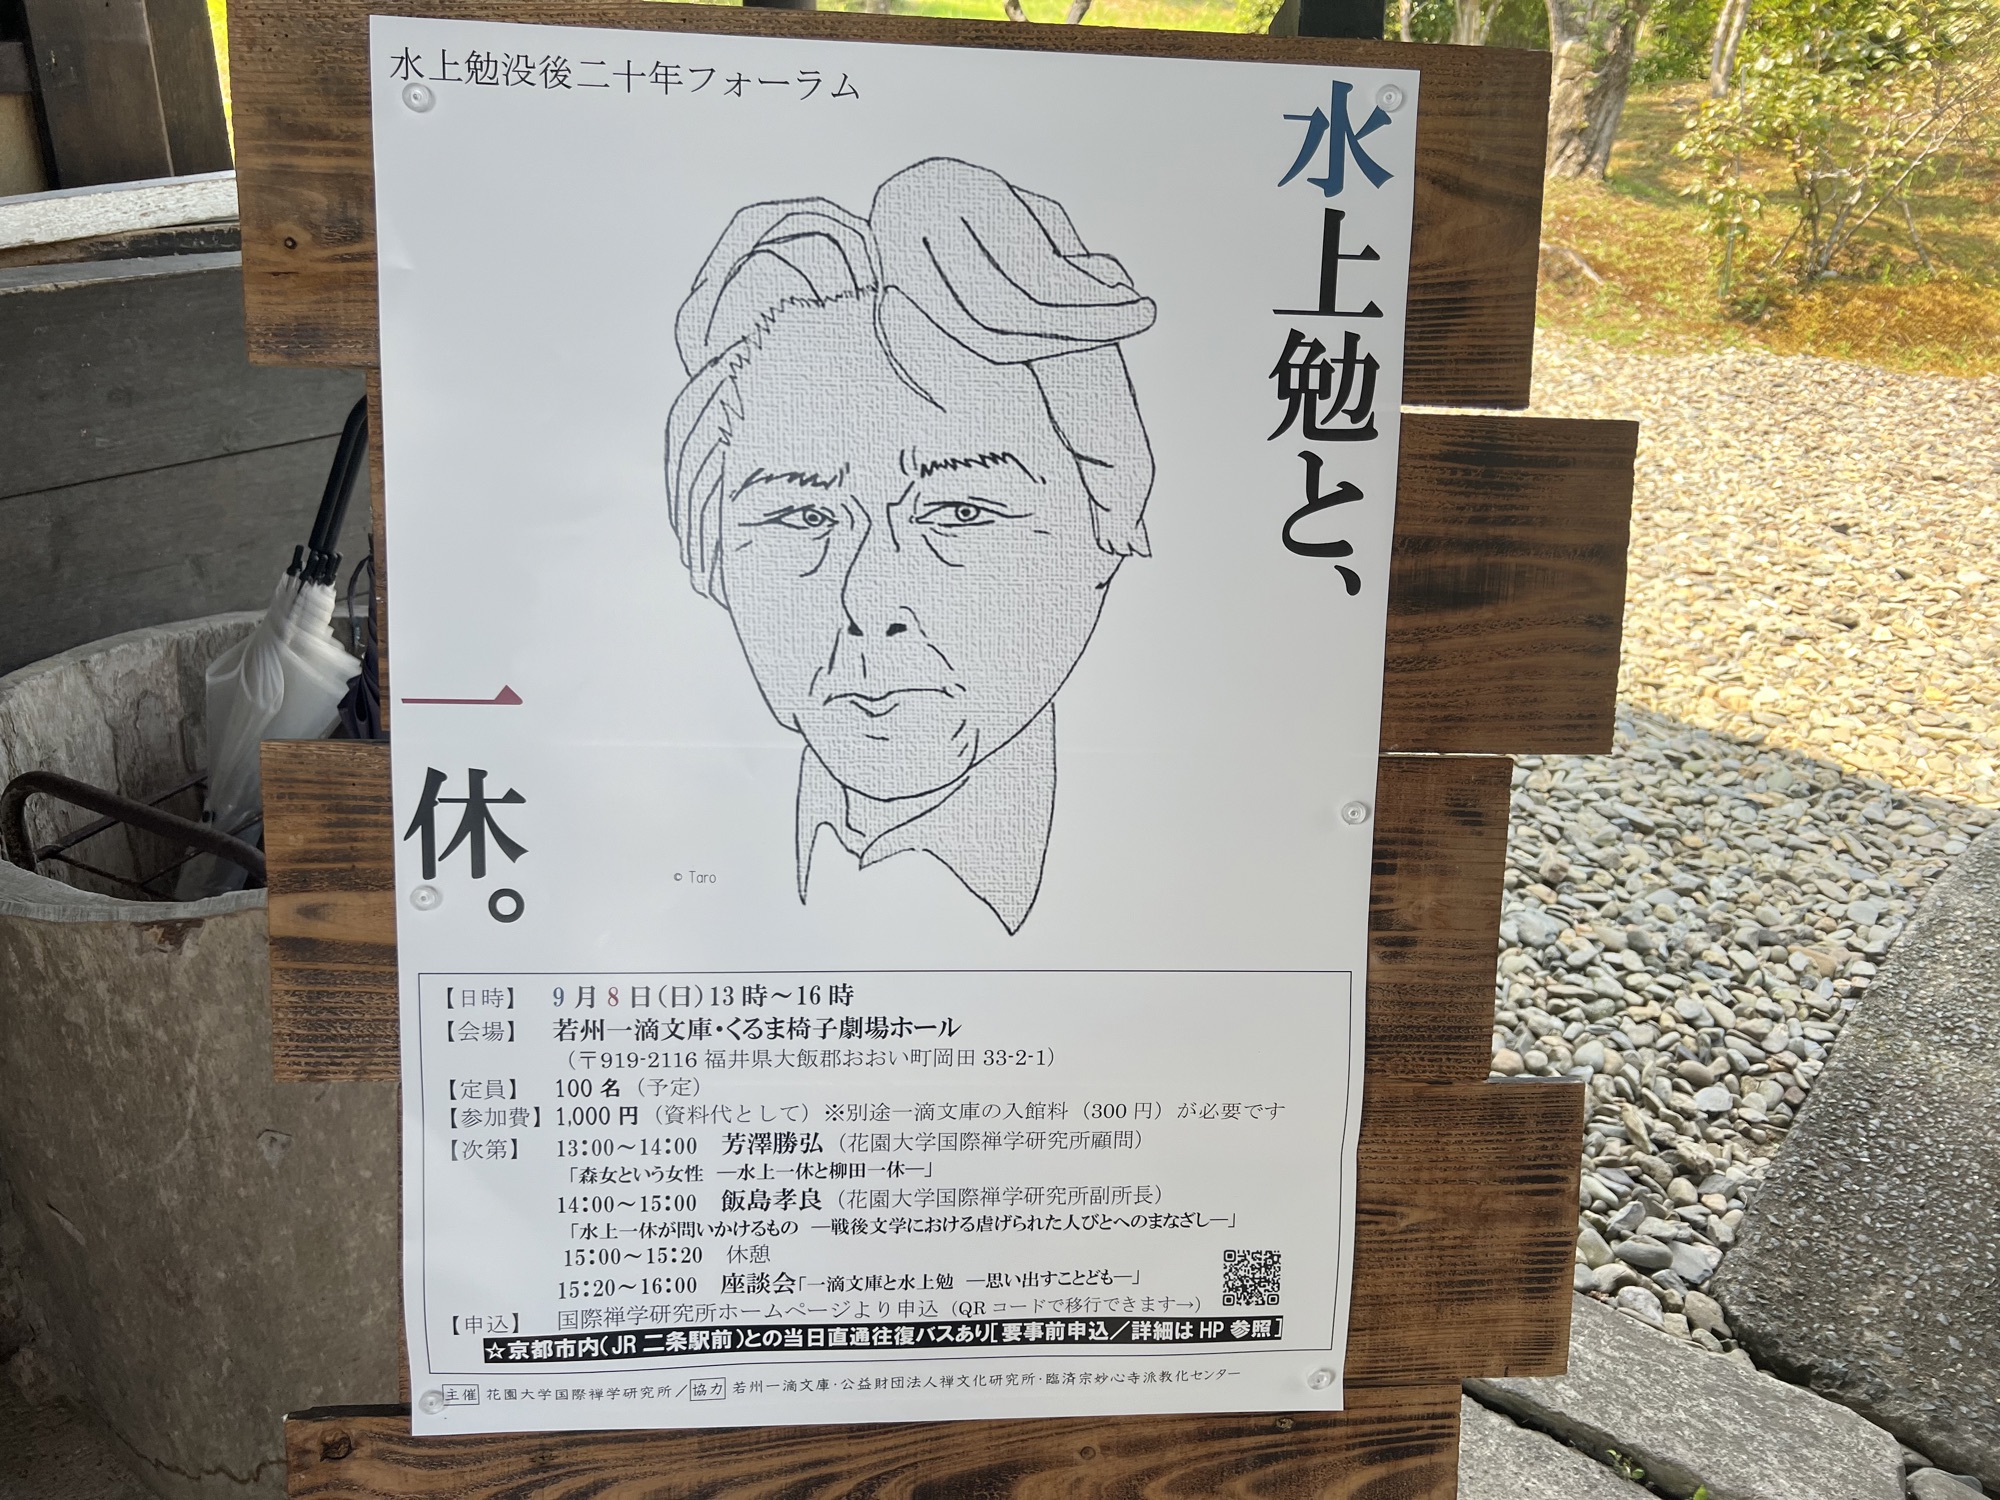 水上勉没後二十年フォーラム
水上勉と、
一休。
© Taro
【日時】 9月8日(日)13時～16時
【会場】 若州一滴文庫・くるま椅子劇場ホール
（〒919-2116 福井県大飯郡おおい町岡田 33-2-1）
【定員】 100名（予定）
【参加費】 1,000円（資料代として）※別途一滴文庫の入館料（300円）が必要です
【次第】 13：00～14：00 芳澤勝弘（花園大学国際禅学研究所顧問）
「森女という女性 ―水上一休と柳田一休―」
14：00～15：00 飯島孝良（花園大学国際禅学研究所副所長）
「水上一休が問いかけるもの ―戦後文学における虐げられた人びとへのまなざし―」
15：00～15：20 休憩
15：20～16：00 座談会「一滴文庫と水上勉 ―思い出すことども―」
【申込】 国際禅学研究所ホームページより申込（QRコードで移行できます→）
☆京都市内(JR二条駅前)との当日直通往復バスあり[要事前申込／詳細はHP参照]
主催 花園大学国際禅学研究所／協力 若州一滴文庫・公益財団法人禅文化研究所・臨済宗妙心寺派教化センター